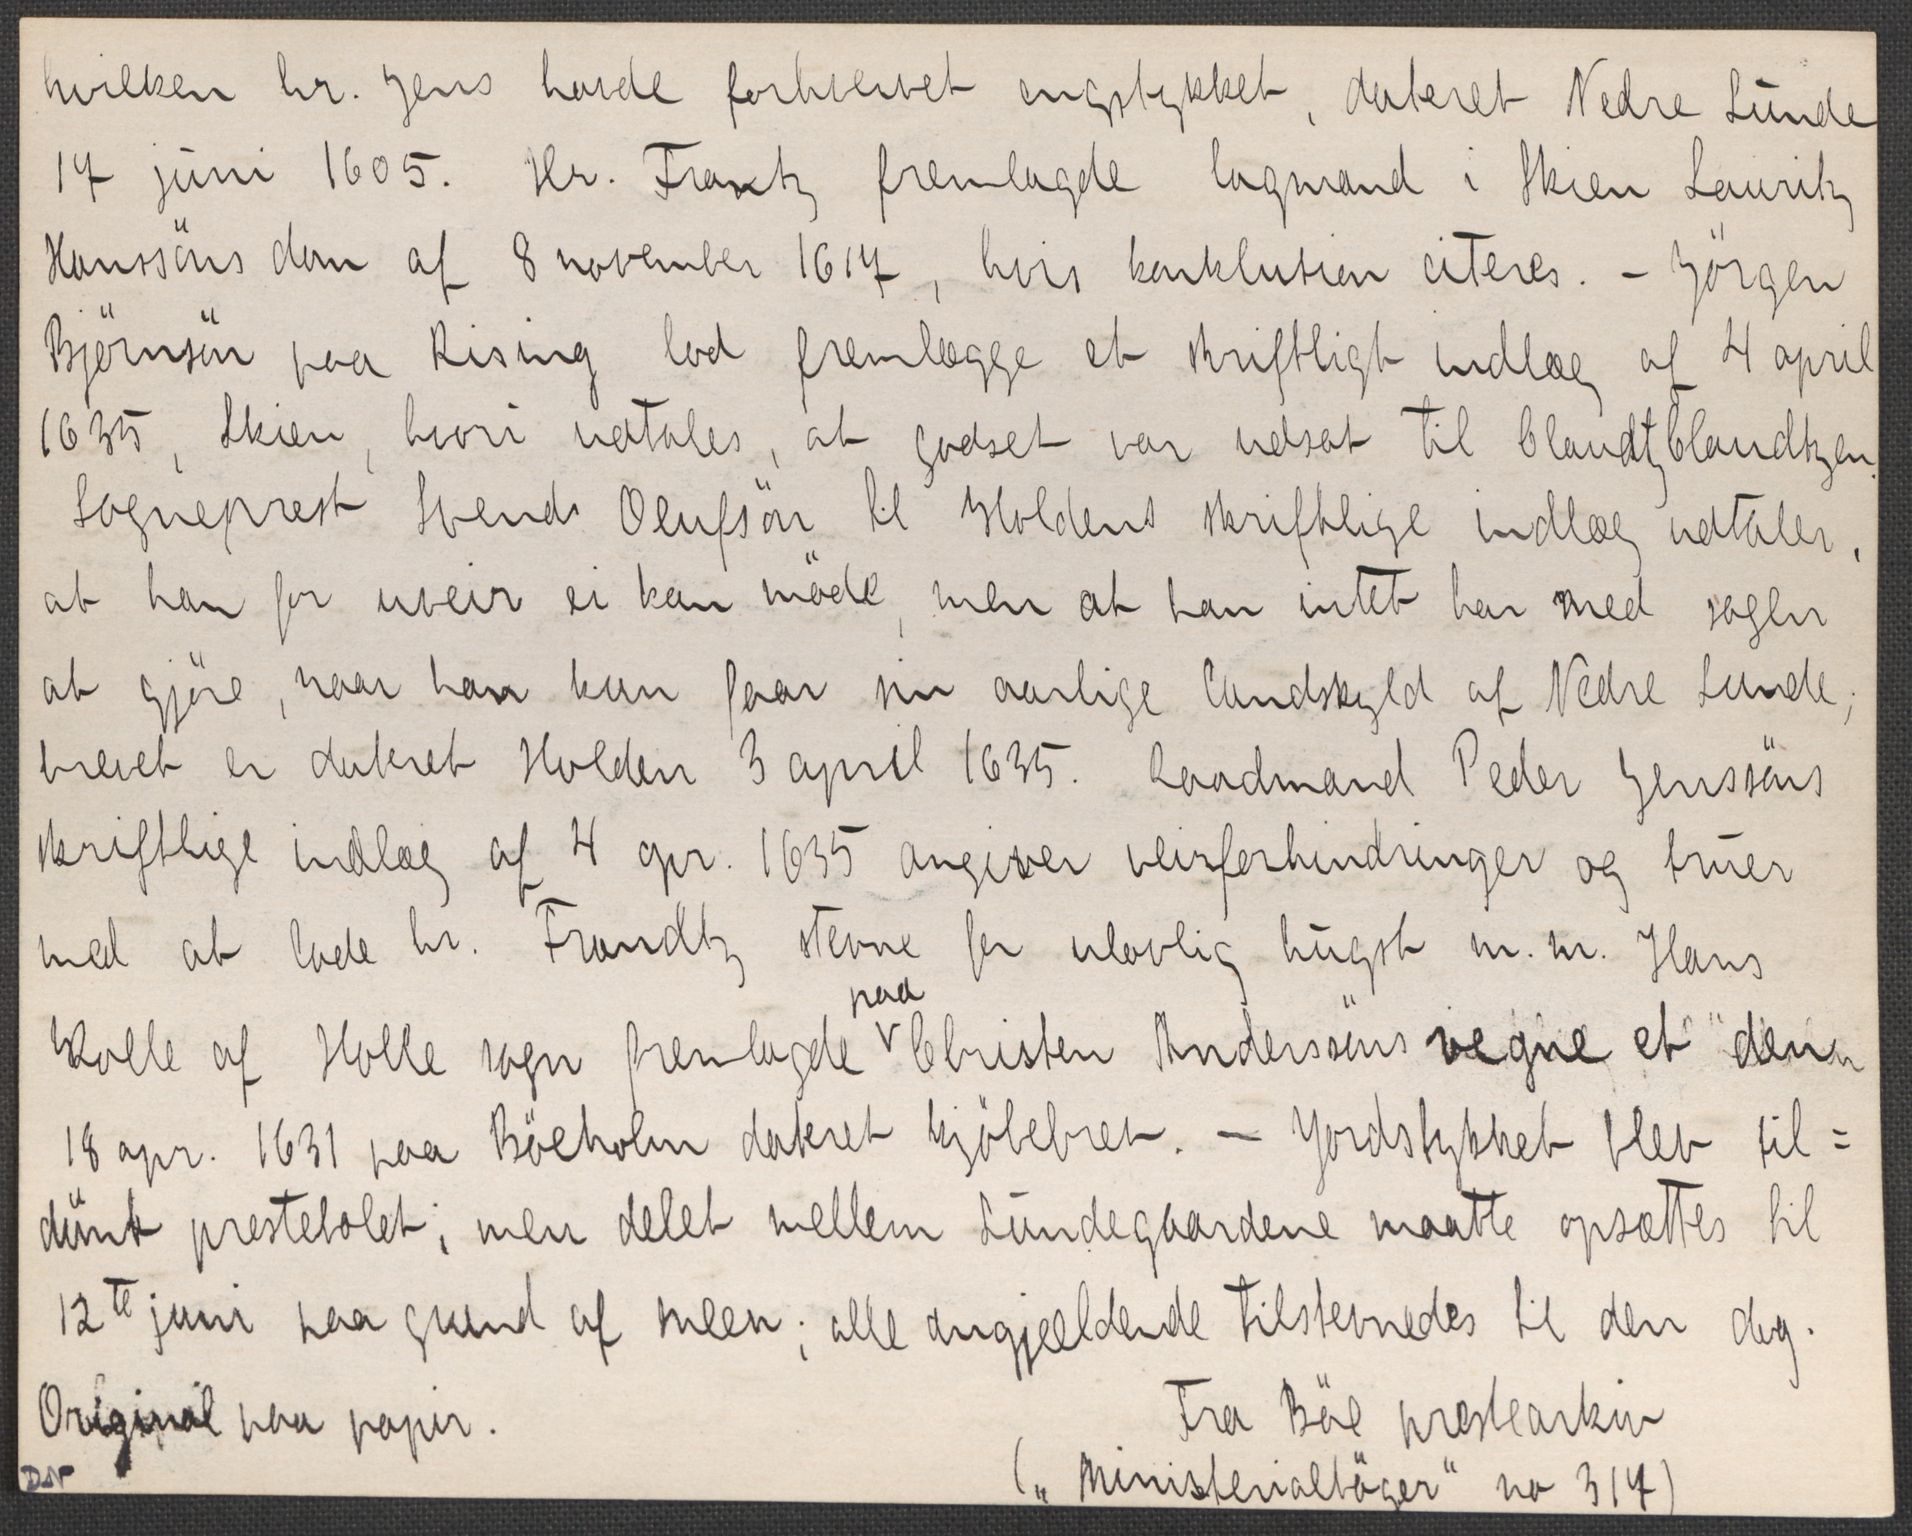 hvilken hr. Jens havde forhvervet engstykket, dateret Nedre Lunde
17 juni 1605. Hr. Frantz fremlagde lagmand i Skien Lauritz
Hanssöns dom af 8 november 1617, hvis konklusion citeres. - Jörgen
Björnsön paa Rising lod fremlægge et skriftligt indlæg af 4 april
1635, Skien, hvori udtales, at godset var udsat til Claudtz Claudtzen.
Sogneprest Svends Olufsön til Holdens skriftlige indlæg udtaler,
at han for uveir ei kan möde, men at han intet har med sagen
at gjöre, naar han kun faar sin aarlige landskyld af Nedre Lunde;
brevet er dateret Holden 3 april 1635. Raadmand Peder Jenssöns
skriftlige indlæg af 4 apr. 1635 angiver veirforhindringer og truer
med at lade hr. Frandtz stevne for ulovlig hugst m.m. Hans
Kolle af Holle sogn fremlagde paa Christen Anderssöns vegne et den
18 apr. 1631 paa Böeholm dateret kjöbebrev. — Jordstykket blev til=
dömt prestebolet; men delet mellem Lundegaardene maatte opsættes til
12te juni paa grund af sneen; alle angjældende tilstevnedes til den dag.
Original paa papir.
Fra Böe prestearkiv
(„Ministerialböger" no 317)
DN